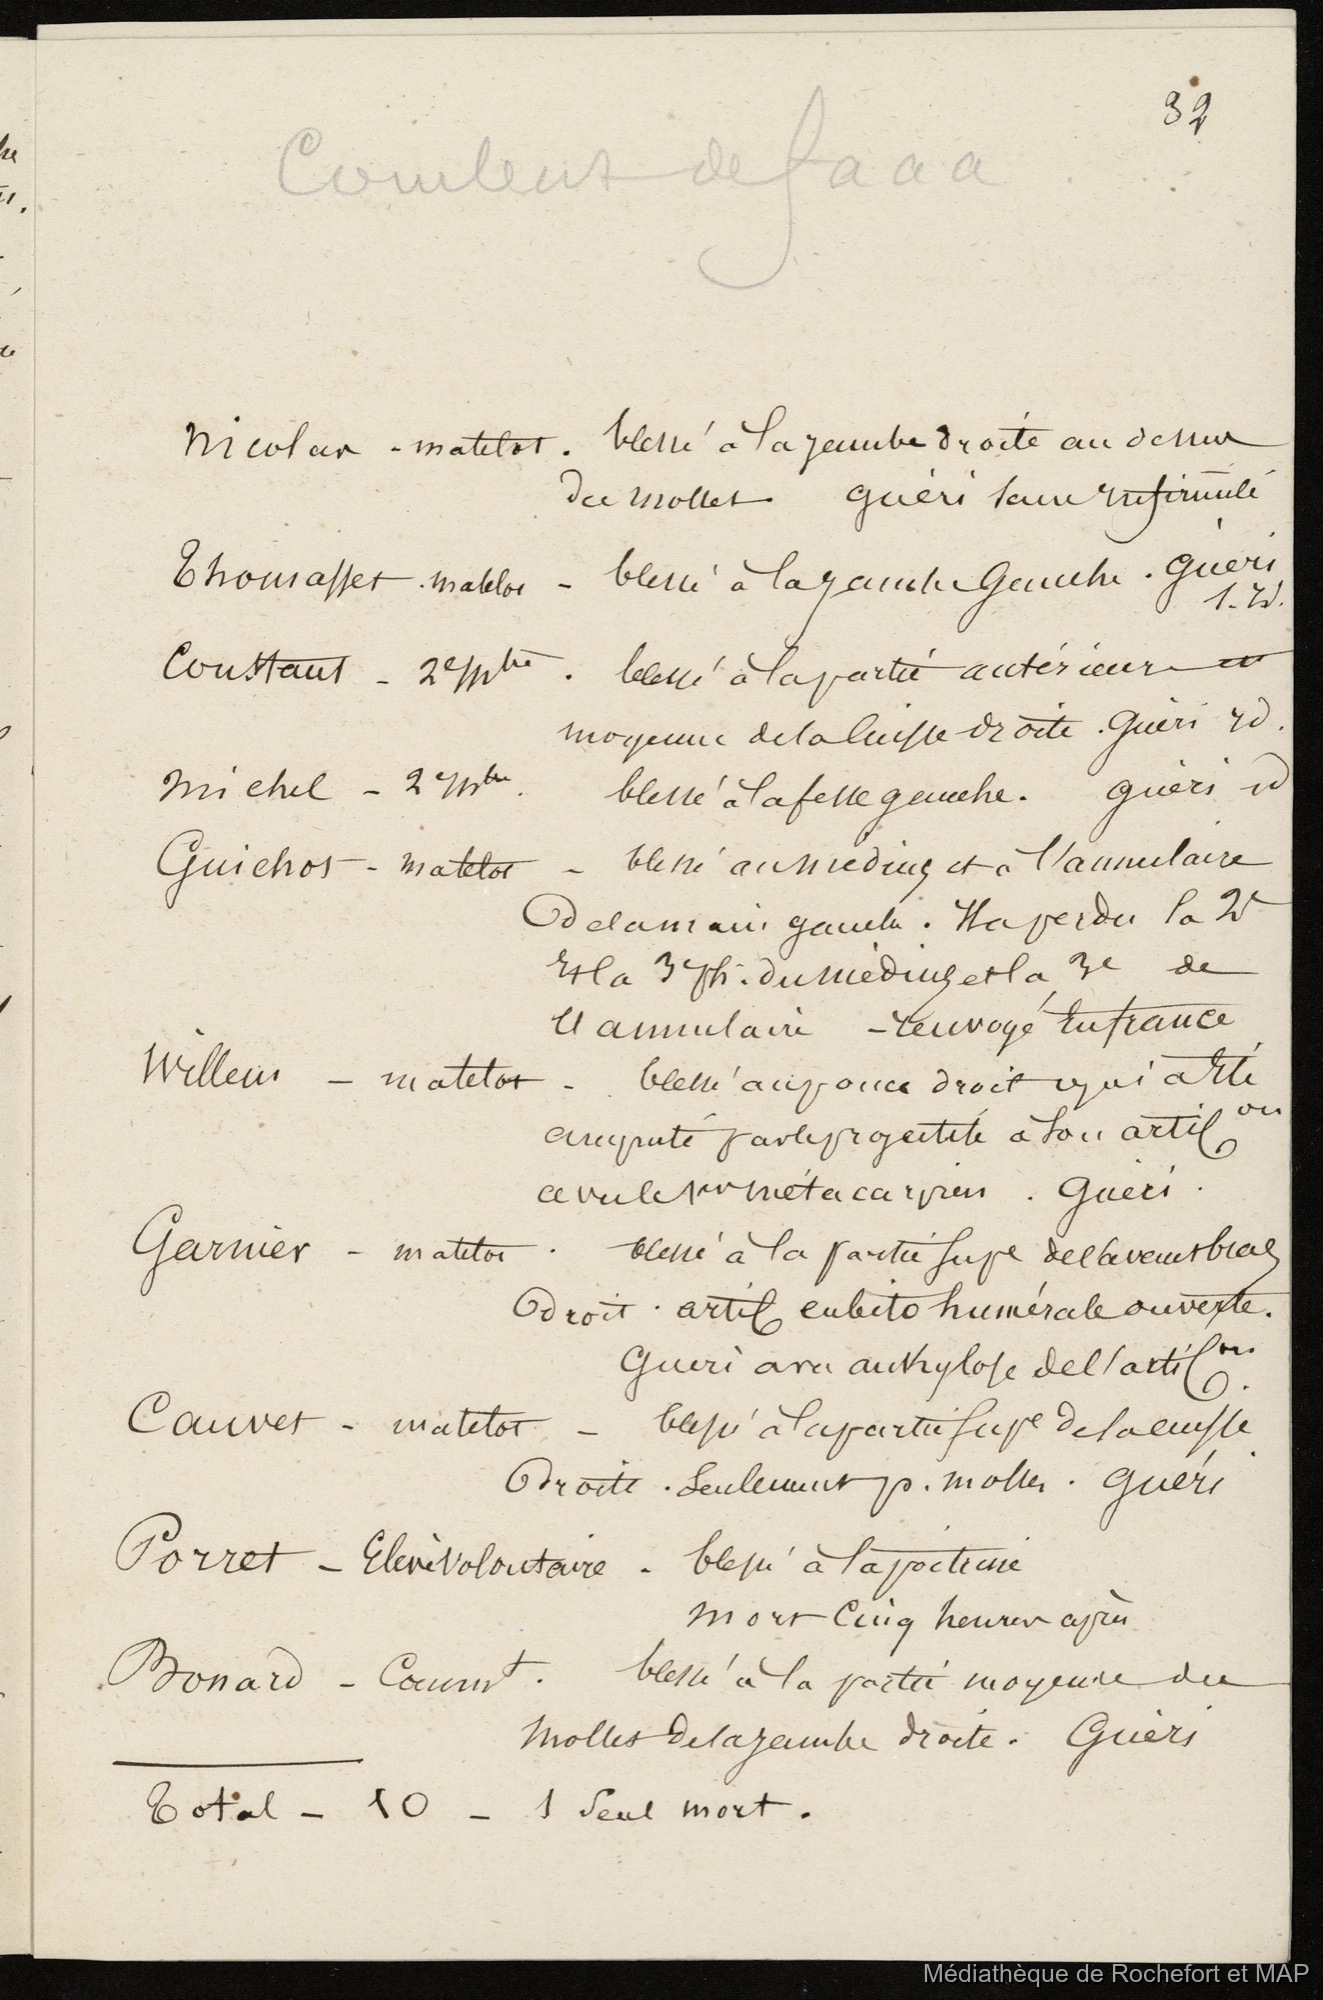 32
Combat de faaa
Nicolas - matelot. blessé à la jambe droite au dessus
du mollet. guéri sans infirmité
Thomasset. matelot - blessé à la jambe Gauche. Guéri
s. id.
Constant - 2e mtre. blessé à la partie antérieure et
moyenne de la cuisse droite. Guéri id.
Michel - 2e mtre. blessé à la fesse gauche. guéri id
Guichot - matelot - blessé au médius et à l'annulaire
de la main gauche. Il a perdu la 2e
et la 3e ph. du médius et la 3e de
l'annulaire - renvoyé En france
Willem - matelot - blessé au pouce droit qui a été
amputé par le projectile à son articon
avec le 1er métacarpien. Guéri.
Garnier - matelot. blessé à la partie supe de l'avant bras
droit. artic cubito humérale ouverte.
Gueri avec ankylose de l'articon.
Cauvet - matelot - blessé à la partie supe de la cuisse
Droite. Seulement p. molles. Guéri
Porret - Elève Volontaire - blessé à la poitrine
mort cinq heures après
Bonard - Commt. blessé à la partie moyenne du
Mollet de la jambe droite. Guéri
Total - 10 - 1 Seul mort.
Médiathèque de Rochefort et MAP